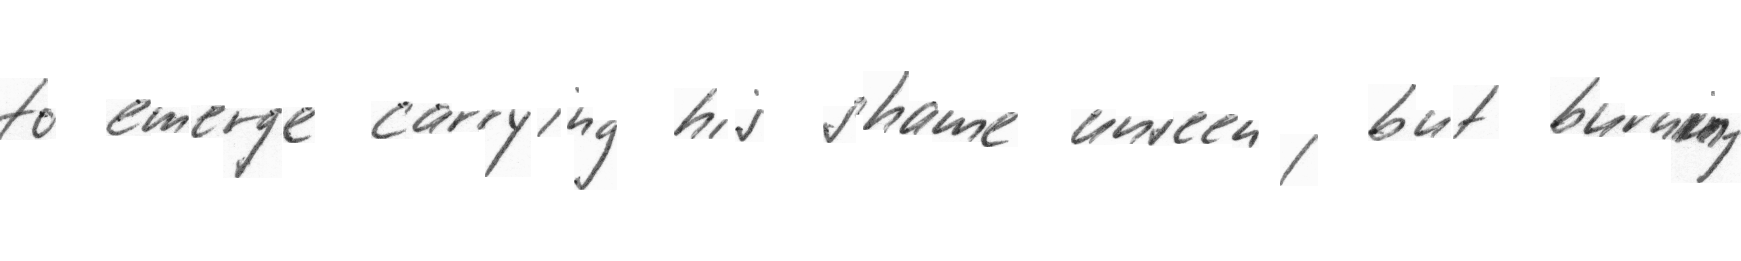 to emerge carrying his shame unseen, but burning